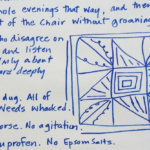 hole evenings that way, and then
t of the Chair without groaning
ho disagree on
and listen
ainly about
ars deeply
dug. All of
Weeds Whacked.
orse. No agitation.
uprofen. No Epsom Salts.